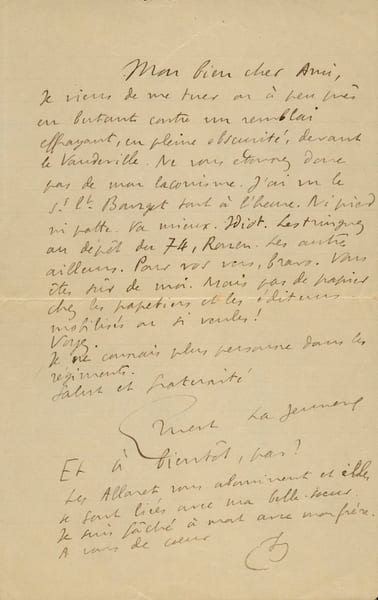 Mon bien cher Ami,
Je viens de me tuer ou à peu près
en butant contre un remblai
effrayant, en pleine obscurité, devant
le Vaudeville. Ne vous étonnez donc
pas de mon laconisme. J'ai vu le
s/ Lt. tout à l'heure. Ni pied
ni patte. Va mieux. Idiot. Lestringuez
au dépôt du 74, Rouen. Les autres
ailleurs. Pour vos vers, bravo. Vous
êtes sûr de moi. Mais pas de papier
chez les papetiers et les éditeurs
mobilisés ou si veules!
Je ne connais plus personne dans les
régiments.
Salut et fraternité
Ernest La Jeunesse
Et à bientôt, pas?
Les Allaret vous abominent et
se sont liés avec ma belle-sœur.
Je suis fâché à mort avec mon frère.
A vous de cœur